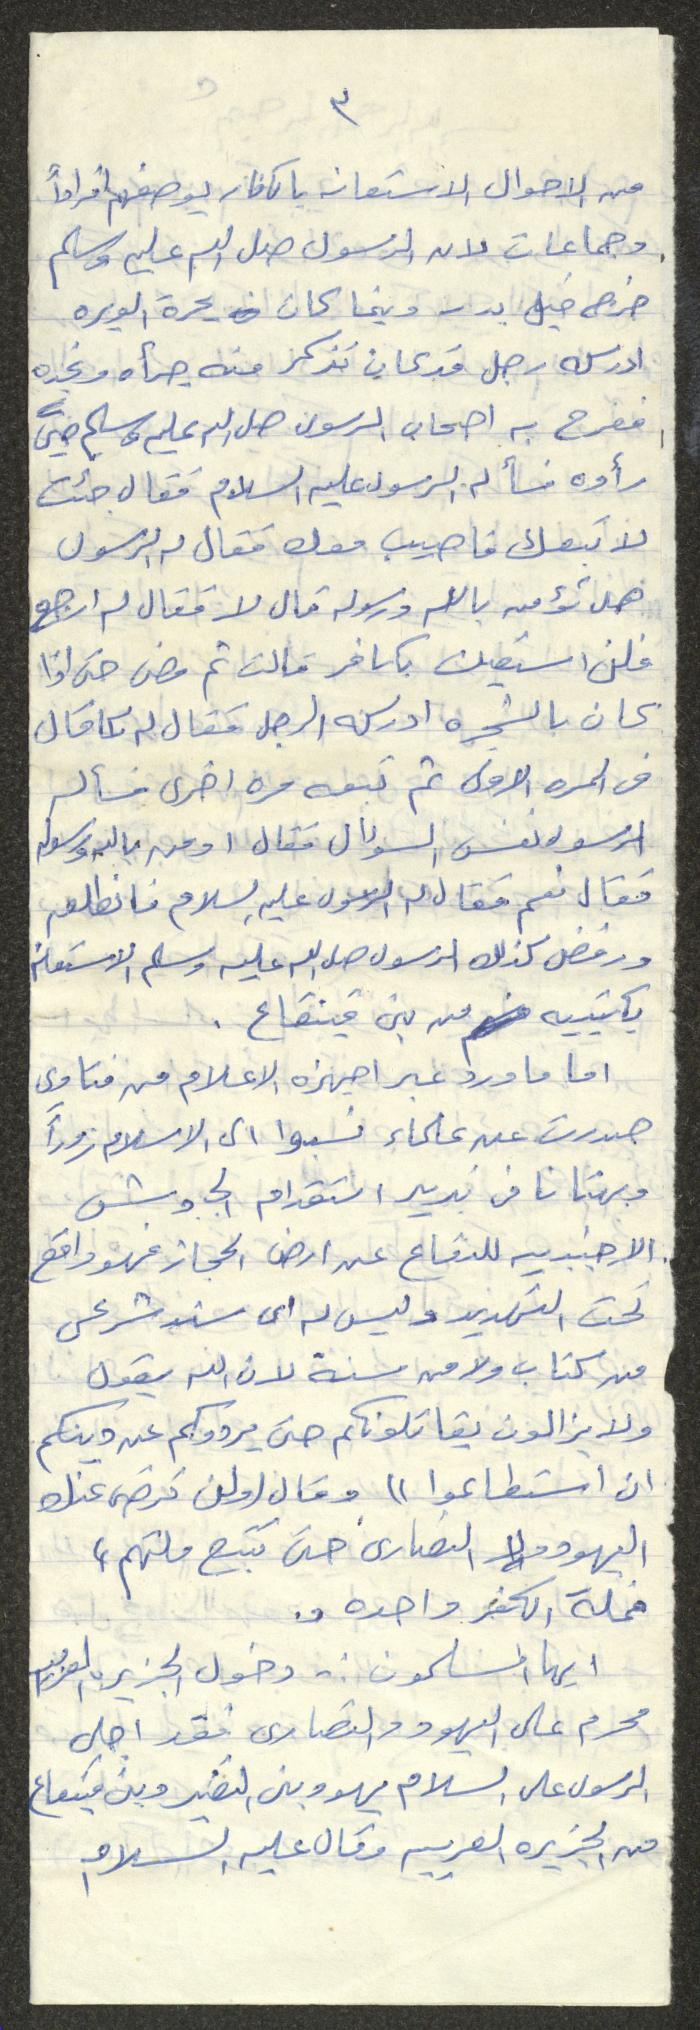 ٣
من الاحوال الاستعانه بالكفار بوصفهم افراداً
وجماعات لان الرسول صلى الله عليه وسلم
خرج قبل بدر وبينما كان في بحرة الوبره
ادركه رجل قد كان تذكر منه جرأه ونجده
ففرح به اصحاب الرسول صلى الله عليه وسلم حين
رأوه فسأله الرسول عليه السلام فقال جئت
لاتبعك فاصيب معك فقال له الرسول
هل تؤمن بالله ورسوله قال لا فقال له ارجع
فلن استعين بكافر قالت ثم مضى حتى اذا
كان بالشجره ادركه الرجل فقال له كما قال
في المره الاولى ثم تبعه مره اخرى فسأله
الرسول نفس السؤال فقال اومن بالله ورسوله
فقال نعم فقال له الرسول عليه السلام فانطلق
ورفض كذلك الرسول صلى الله عليه وسلم الاستعانه
بكتيبه من بني قينقاع .
اما ما ورد عبر اجهزه الاعلام من فتاوي
صدرت عن علماء نسبوا الى الاسلام زوراً
وبهتانا في تبرير استقدام الجيوش
الاجنبيه للدفاع عن ارض الحجاز فهو واقع
تحت التهديد وليس له اي سند شرعي
من كتاب ولا من سنة لان الله يقول
ولا يزالون يقاتلونكم حتى يردوكم عن دينكم
ان استطاعوا )) وقال (ولن ترضى عنك
اليهود ولا النصارى حتى تتبع ملتهم ،
فملة الكفر واحده .
ايها المسلمون :- دخول الجزيره العربيه
محرم على اليهود والنصارى فقد اجلى
الرسول على السلام يهود بني النضير وبني قينقاع
من الجزيره العربيه وقال عليه السلام